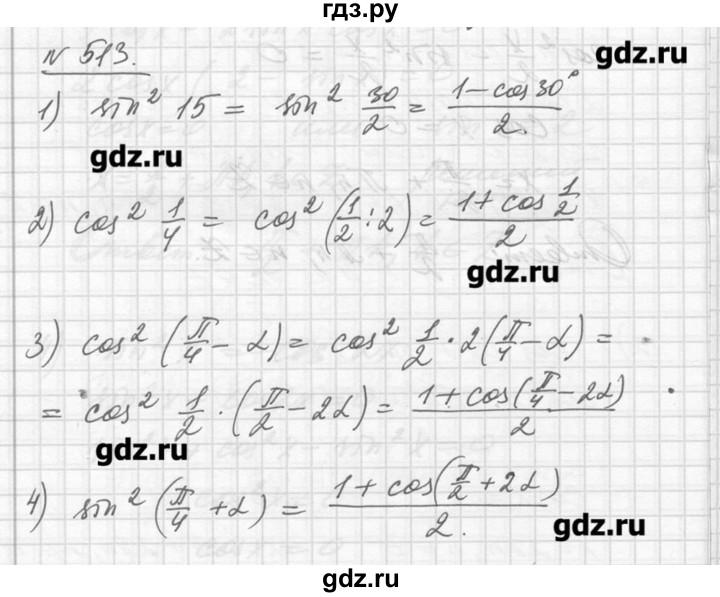 гдз.ру
№ 513.
gdz.ru
1) sin² 15 = sin² 30/2 = (1-cos30°)/2.
gdz.ru
2) cos² 1/4 = cos² (1/2 : 2) = (1+cos 1/2)/2
gdz.ru
3) cos² (π/4 - α) = cos² 1/2 · 2(π/4 - α) =
= cos² 1/2 · (π/2 - 2α) = (1+cos(π/4 - 2α))/2
gdz.ru
4) sin² (π/4 + α) = (1+cos(π/2 + 2α))/2.
gdz.ru
gdz.ru